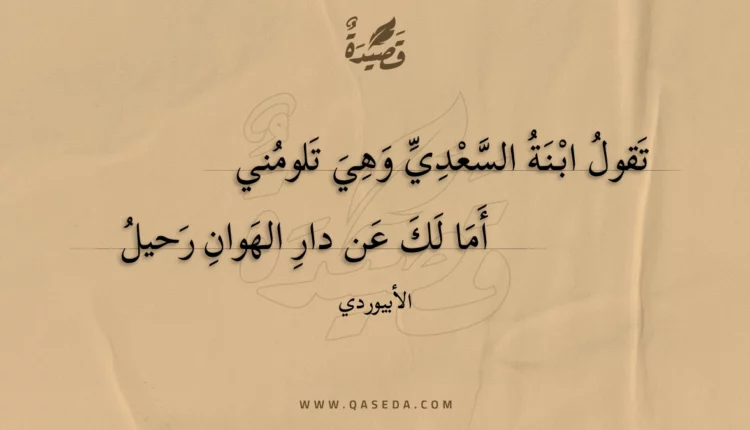 قَصِيدَةٌ
تَقولُ ابْنَةُ السَّعْدِيِّ وَهِيَ تَلومُني
أَمَا لَكَ عَن دارِ الهَوانِ رَحيلُ
الأبيوردي
WWW.QASEDA.COM